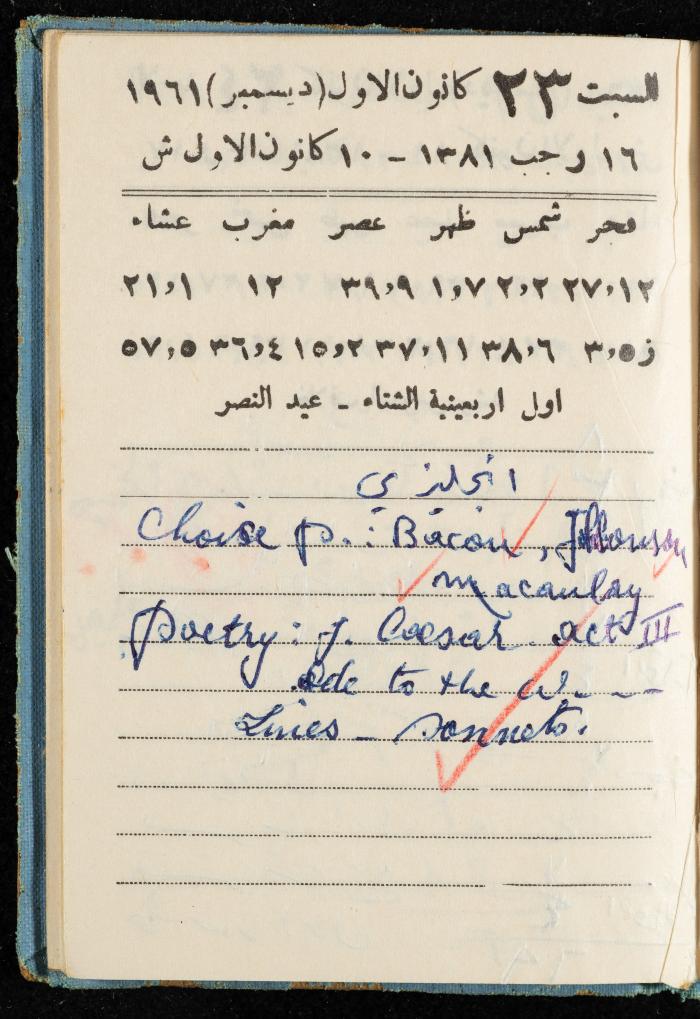 السبت ٢٣ كانون الاول (ديسمبر) ١٩٦١
١٦ رجب ١٣٨١ - ١٠ كانون الاول ش
فجر شمس ظهر عصر مغرب عشاء
١٢،٢٧ ٢،٢ ٧،١ ٩،٣٩ ١٢ ١،٢١
ز ٥،٣ ٦،٣٨ ١١،٣٧ ٢،١٥ ٤،٣٦ ٥،٥٧
اول اربعينية الشتاء - عيد النصر
انجليزي
Choise p. : Bacon, Johnson
Macaulay
Poetry: J. Caesar act III
Ode to the W. - -
Lines - sonnets.